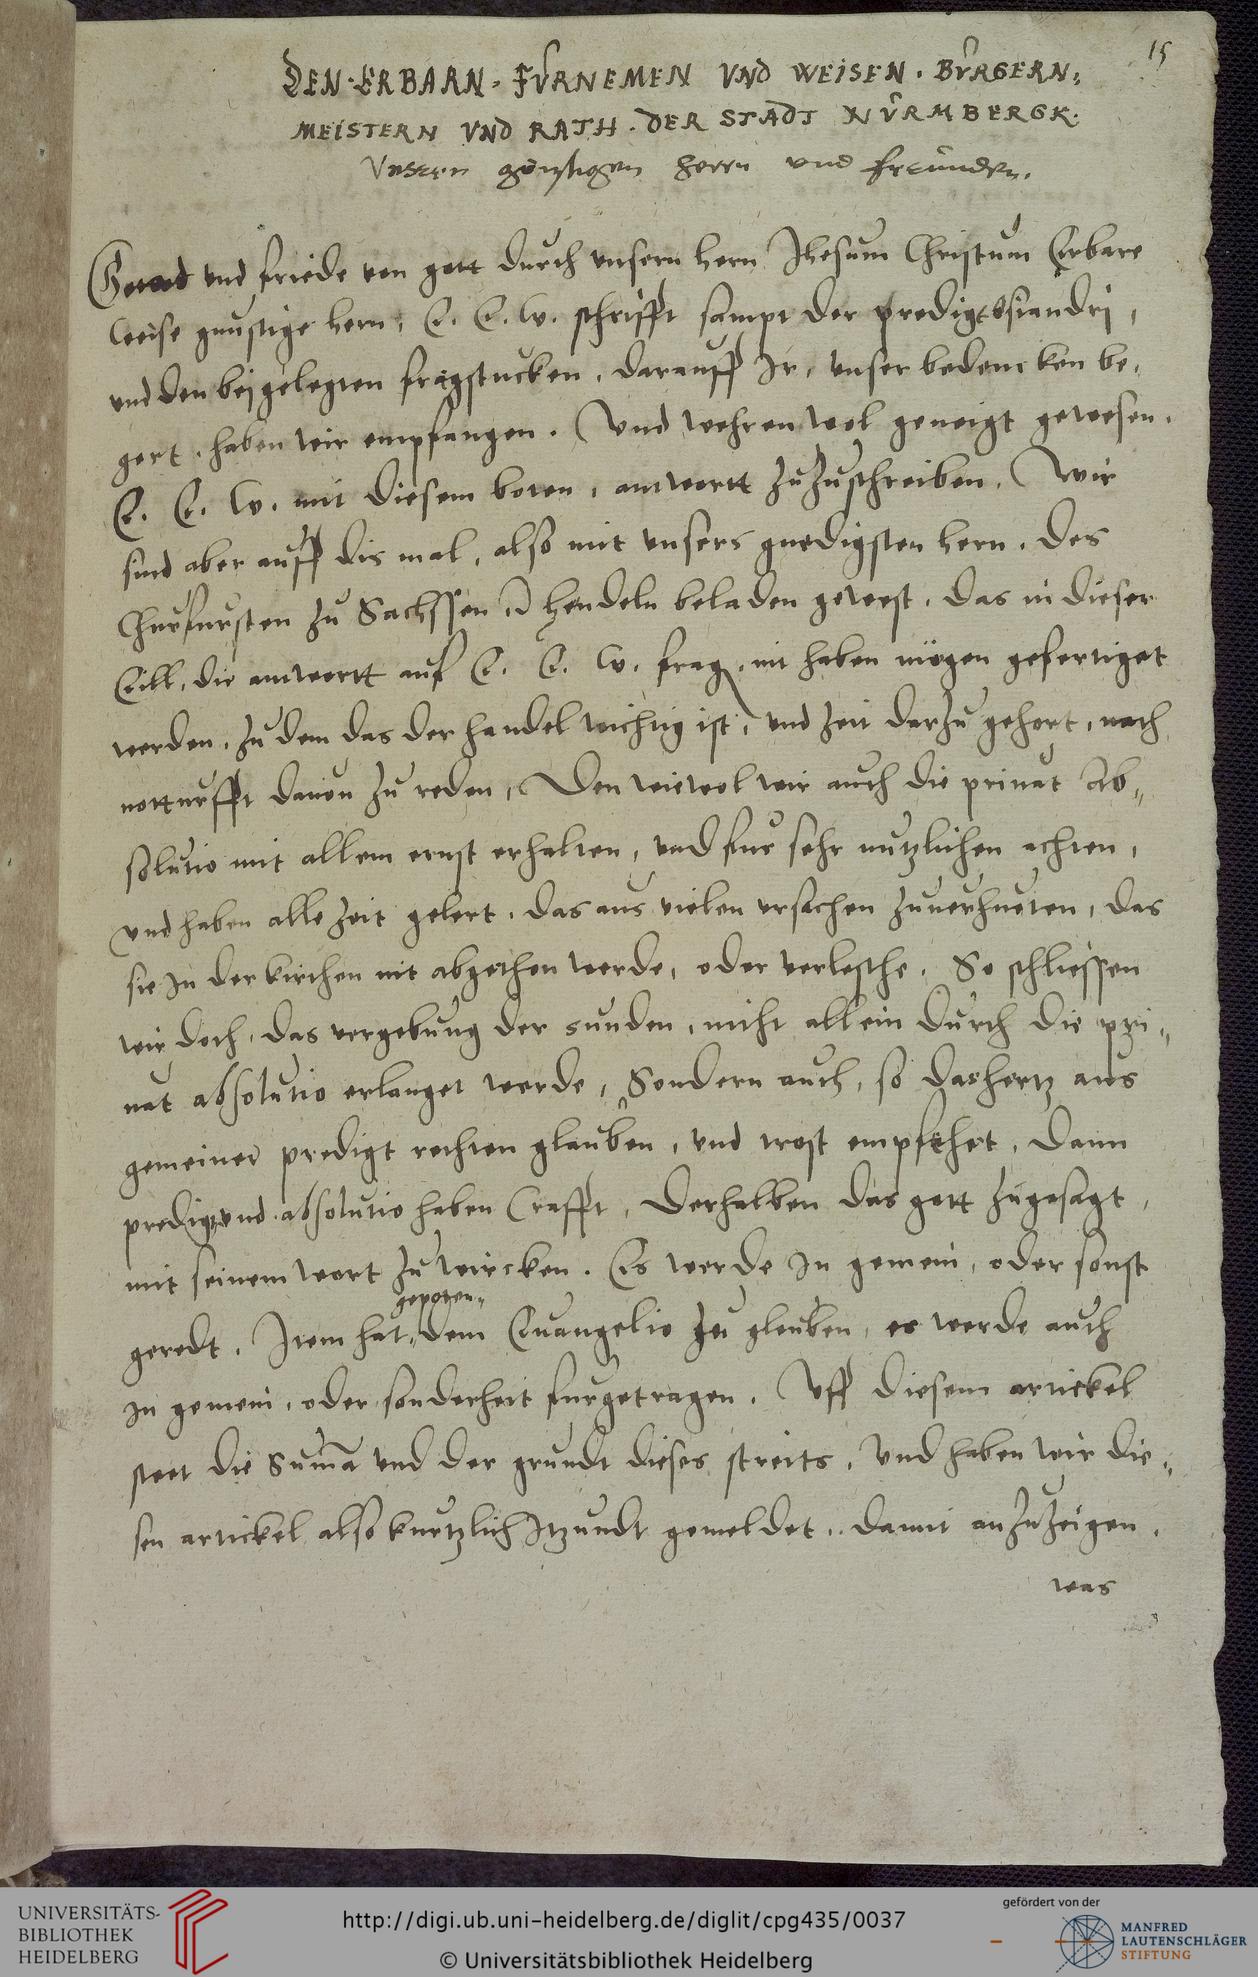 15
DEN · ERBARN · FÜRNEMEN VND WEISEN · BÜRGERN=
MEISTERN VND RATH · DER STADT NÜRMBERGK.
Vnsern günstigen herrn vnd freunden.
Gnad vnd friede von gott durch vnsern hern Jhesum Christum Erbare
weise gunstige hern, E. E. W. schrifft sampt der predigt Osiandrj,
vnd den beygelegten fragstucken, darauff Jr, vnser bedencken be,
gert, haben wir empfangen. Vnd wehren wol geneigt gewesen.
E. E. W. mit diesem boten, antwortt zuzuschreiben. Wir
sind aber auff dis mal, also mit vnsers gnedigsten hern, des
Churfursten zu Sachssen ꝛc hendeln beladen gewest, das in dieser
Eill, die antwortt auf E. E. W. frag, nit haben mögen gefertiget
werden, zu dem das der handel wichtig ist, vnd zeit darzu gehort, nach
notturfft dauon zu reden, Den wiewol wir auch die priuat Ab=
solutio mit allem ernst erhalten, vnd fur sehr nutzlichen achten,
vnd haben alle zeit gelert, das aus vielen vrsachen zuuerhueten, das
sie Jn der kirchen nit abgethon werde, oder verlesche. So schliessen
wir doch, das vergebung der sunden, nicht allein durch die pri=
uat absolutio erlanget werde, Sondern auch, so das hertz aus
gemeiner predigt rechten glauben, vnd trost empfehet, Dann
predigt vnd absolutio haben Crafft, Derhalben das gott zugesagt,
mit seinem wort zu wircken. Es werde Jn gemein, oder sonst
gepoten=
geredt. Item hat, dem Euangelio zu gleuben, es werde auch
Jn gemein, oder sonderheit furgetragen. Vff diesem artickel
steet die Suma vnd der grundt dieses streits, Vnd haben wir die=
sen artickel also kurtzlich Jtzundt gemeldet, damit anzuzeigen.
was
UNIVERSITÄTS-
BIBLIOTHEK
HEIDELBERG
http://digi.ub.uni-heidelberg.de/diglit/cpg435/0037
© Universitätsbibliothek Heidelberg
gefördert von der
MANFRED
LAUTENSCHLÄGER
STIFTUNG